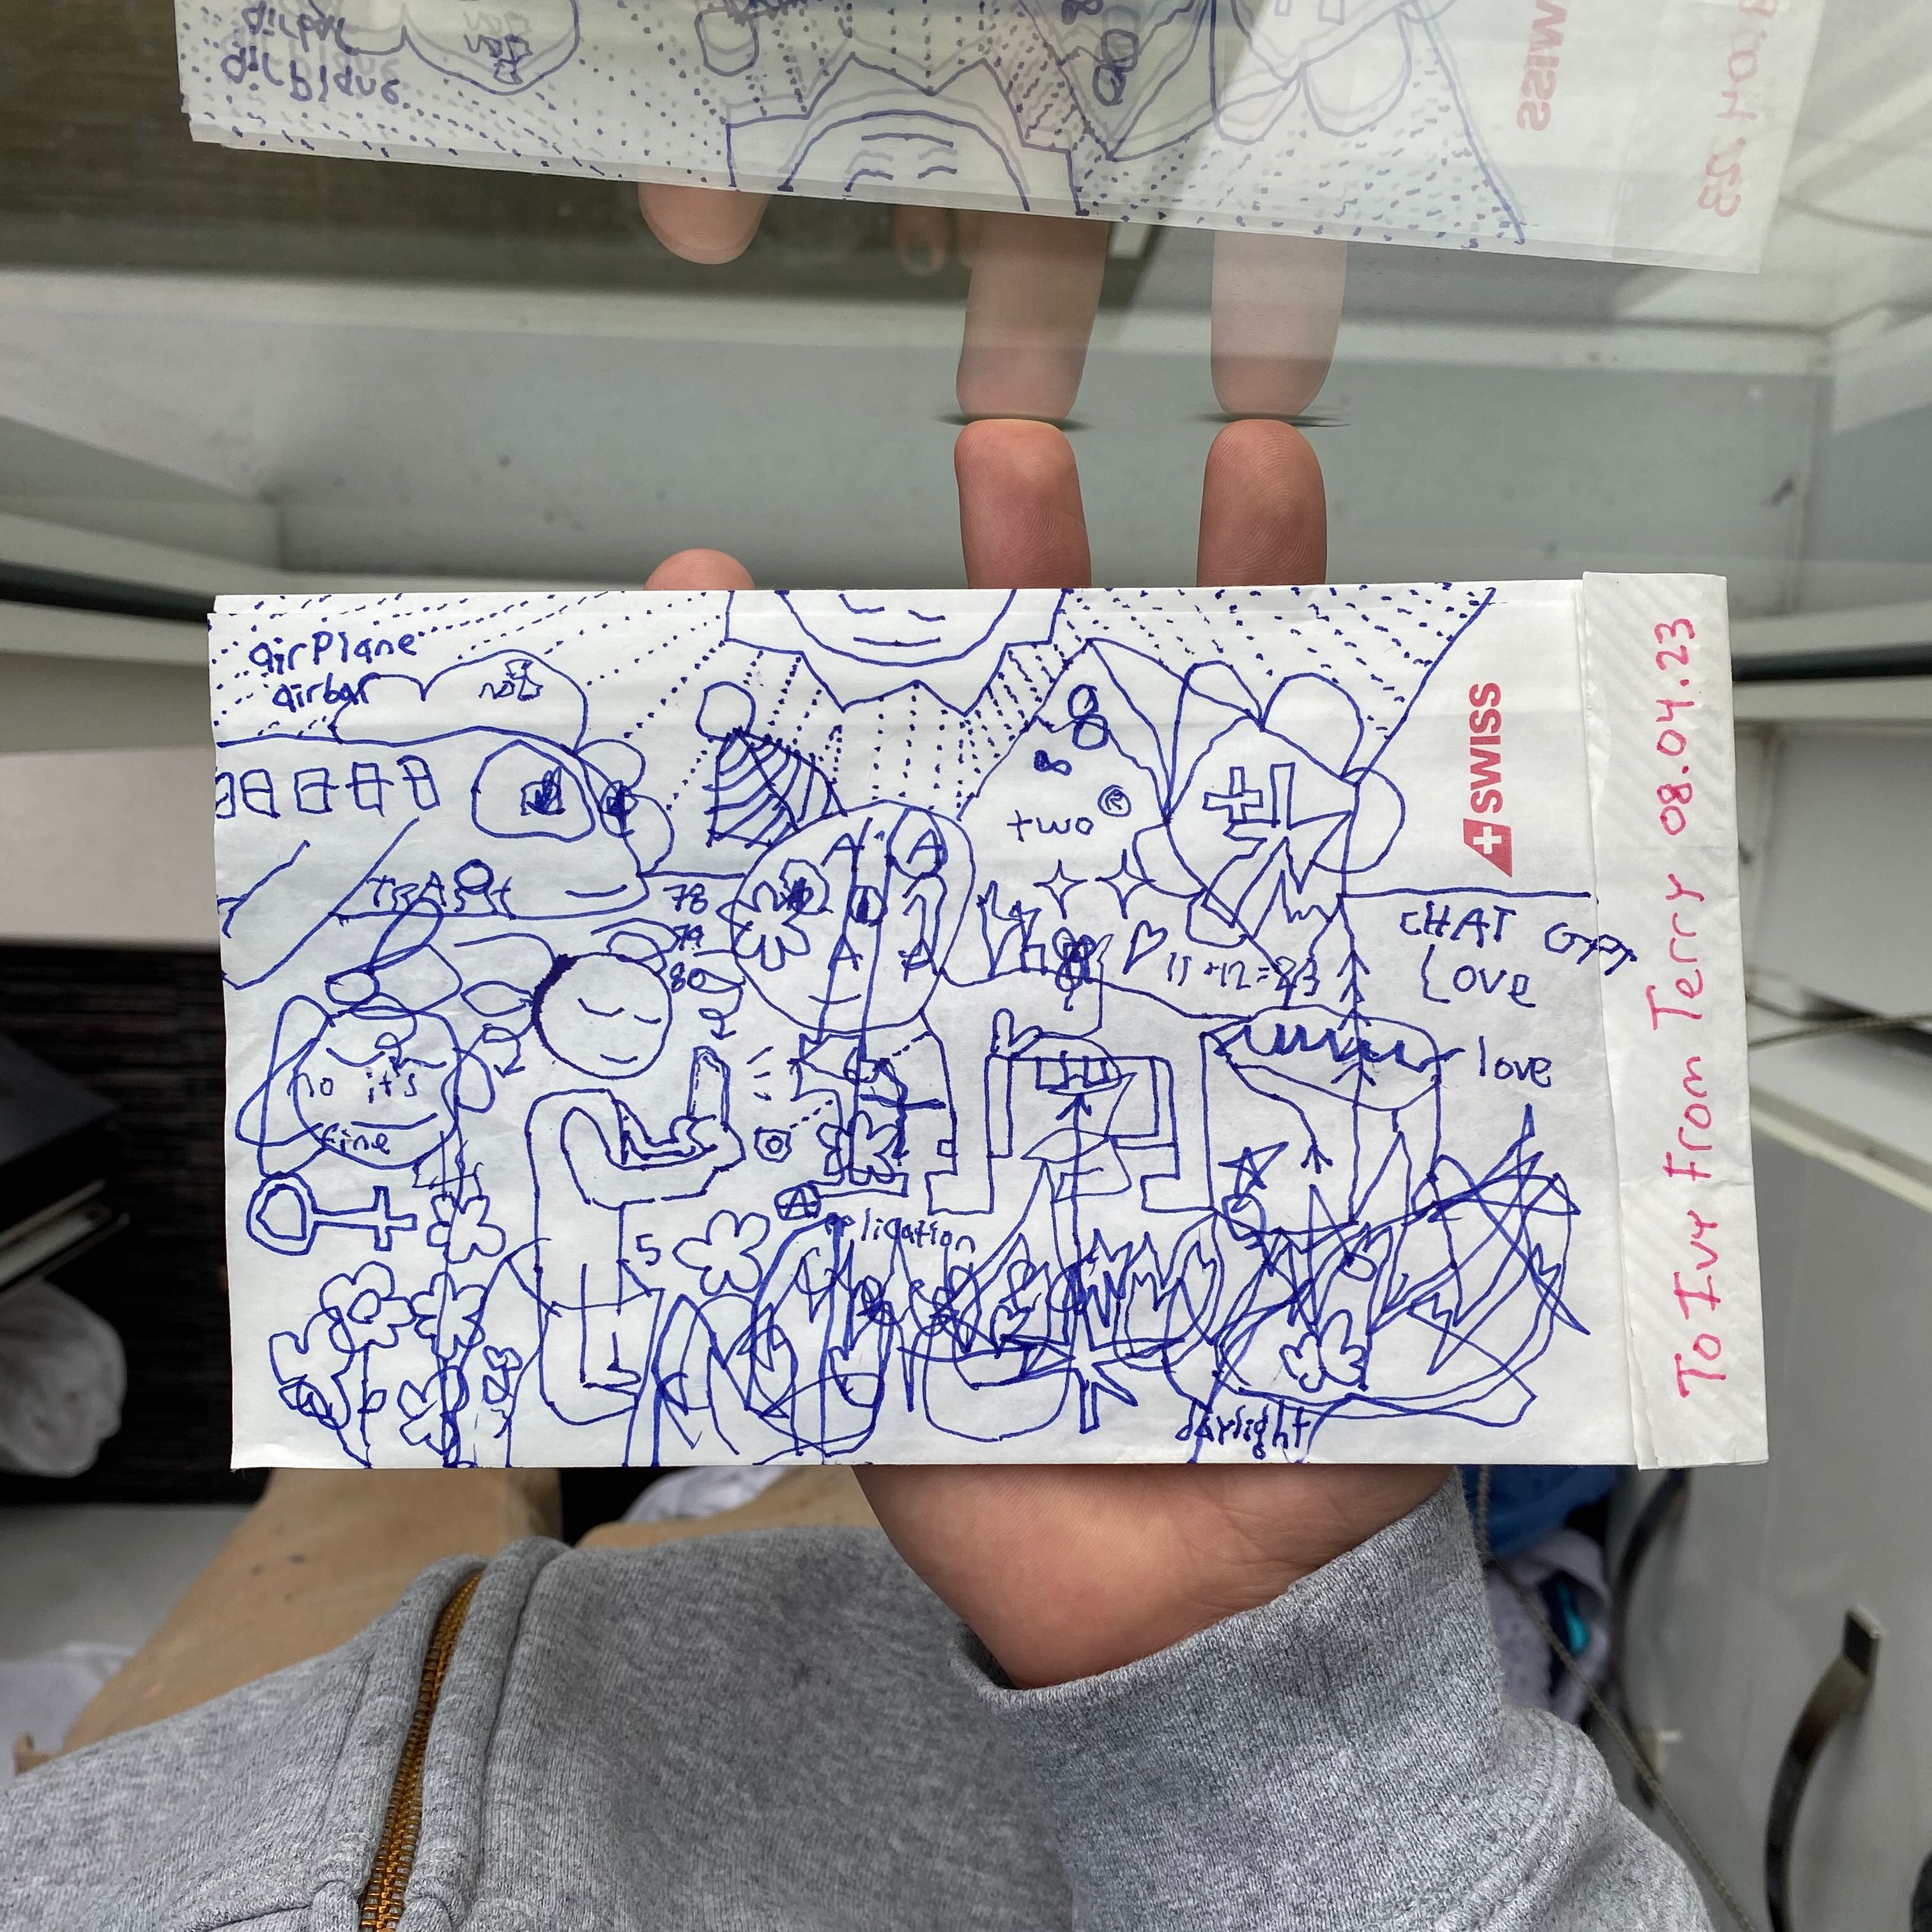 airPlane
airbar
no
two
78
79
80
2
CHAT GPT
Love
11+12=23
love
no it's
fine
5
Application
daylight
SWISS
To Ivy From Terry 08.04.23